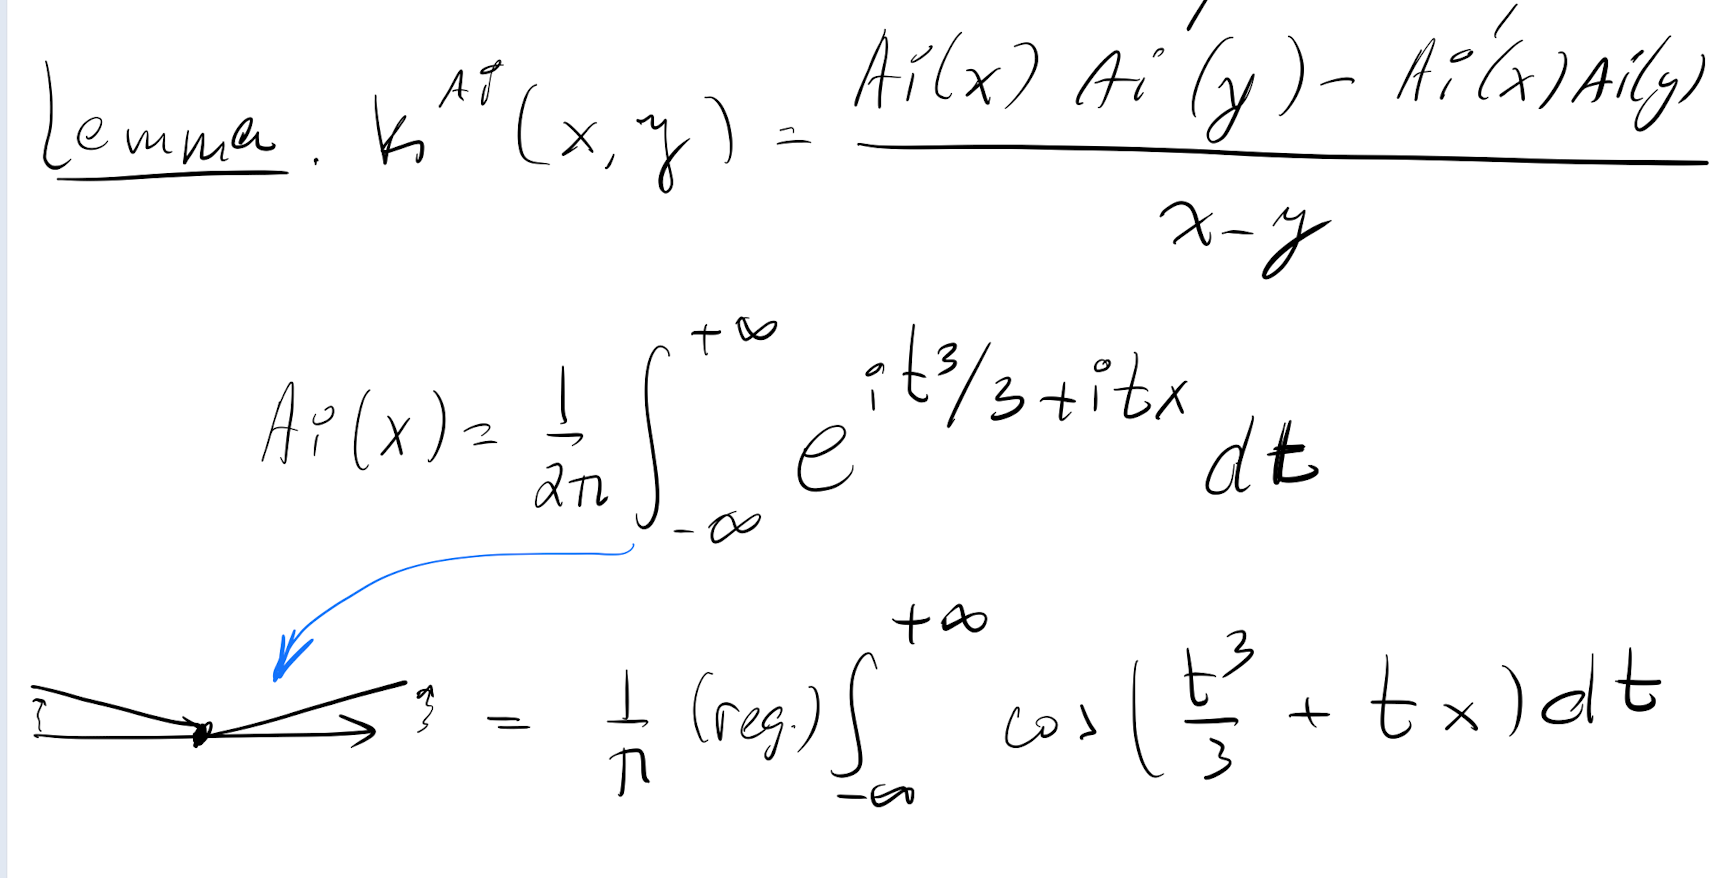 Lemma. K^{Ai}(x, y) = \frac{Ai(x) Ai'(y) - Ai'(x) Ai(y)}{x - y}
Ai(x) = \frac{1}{2\pi} \int_{-\infty}^{+\infty} e^{it^3/3 + itx} dt
= \frac{1}{\pi} (reg.) \int_{-\infty}^{+\infty} cos(\frac{t^3}{3} + tx) dt